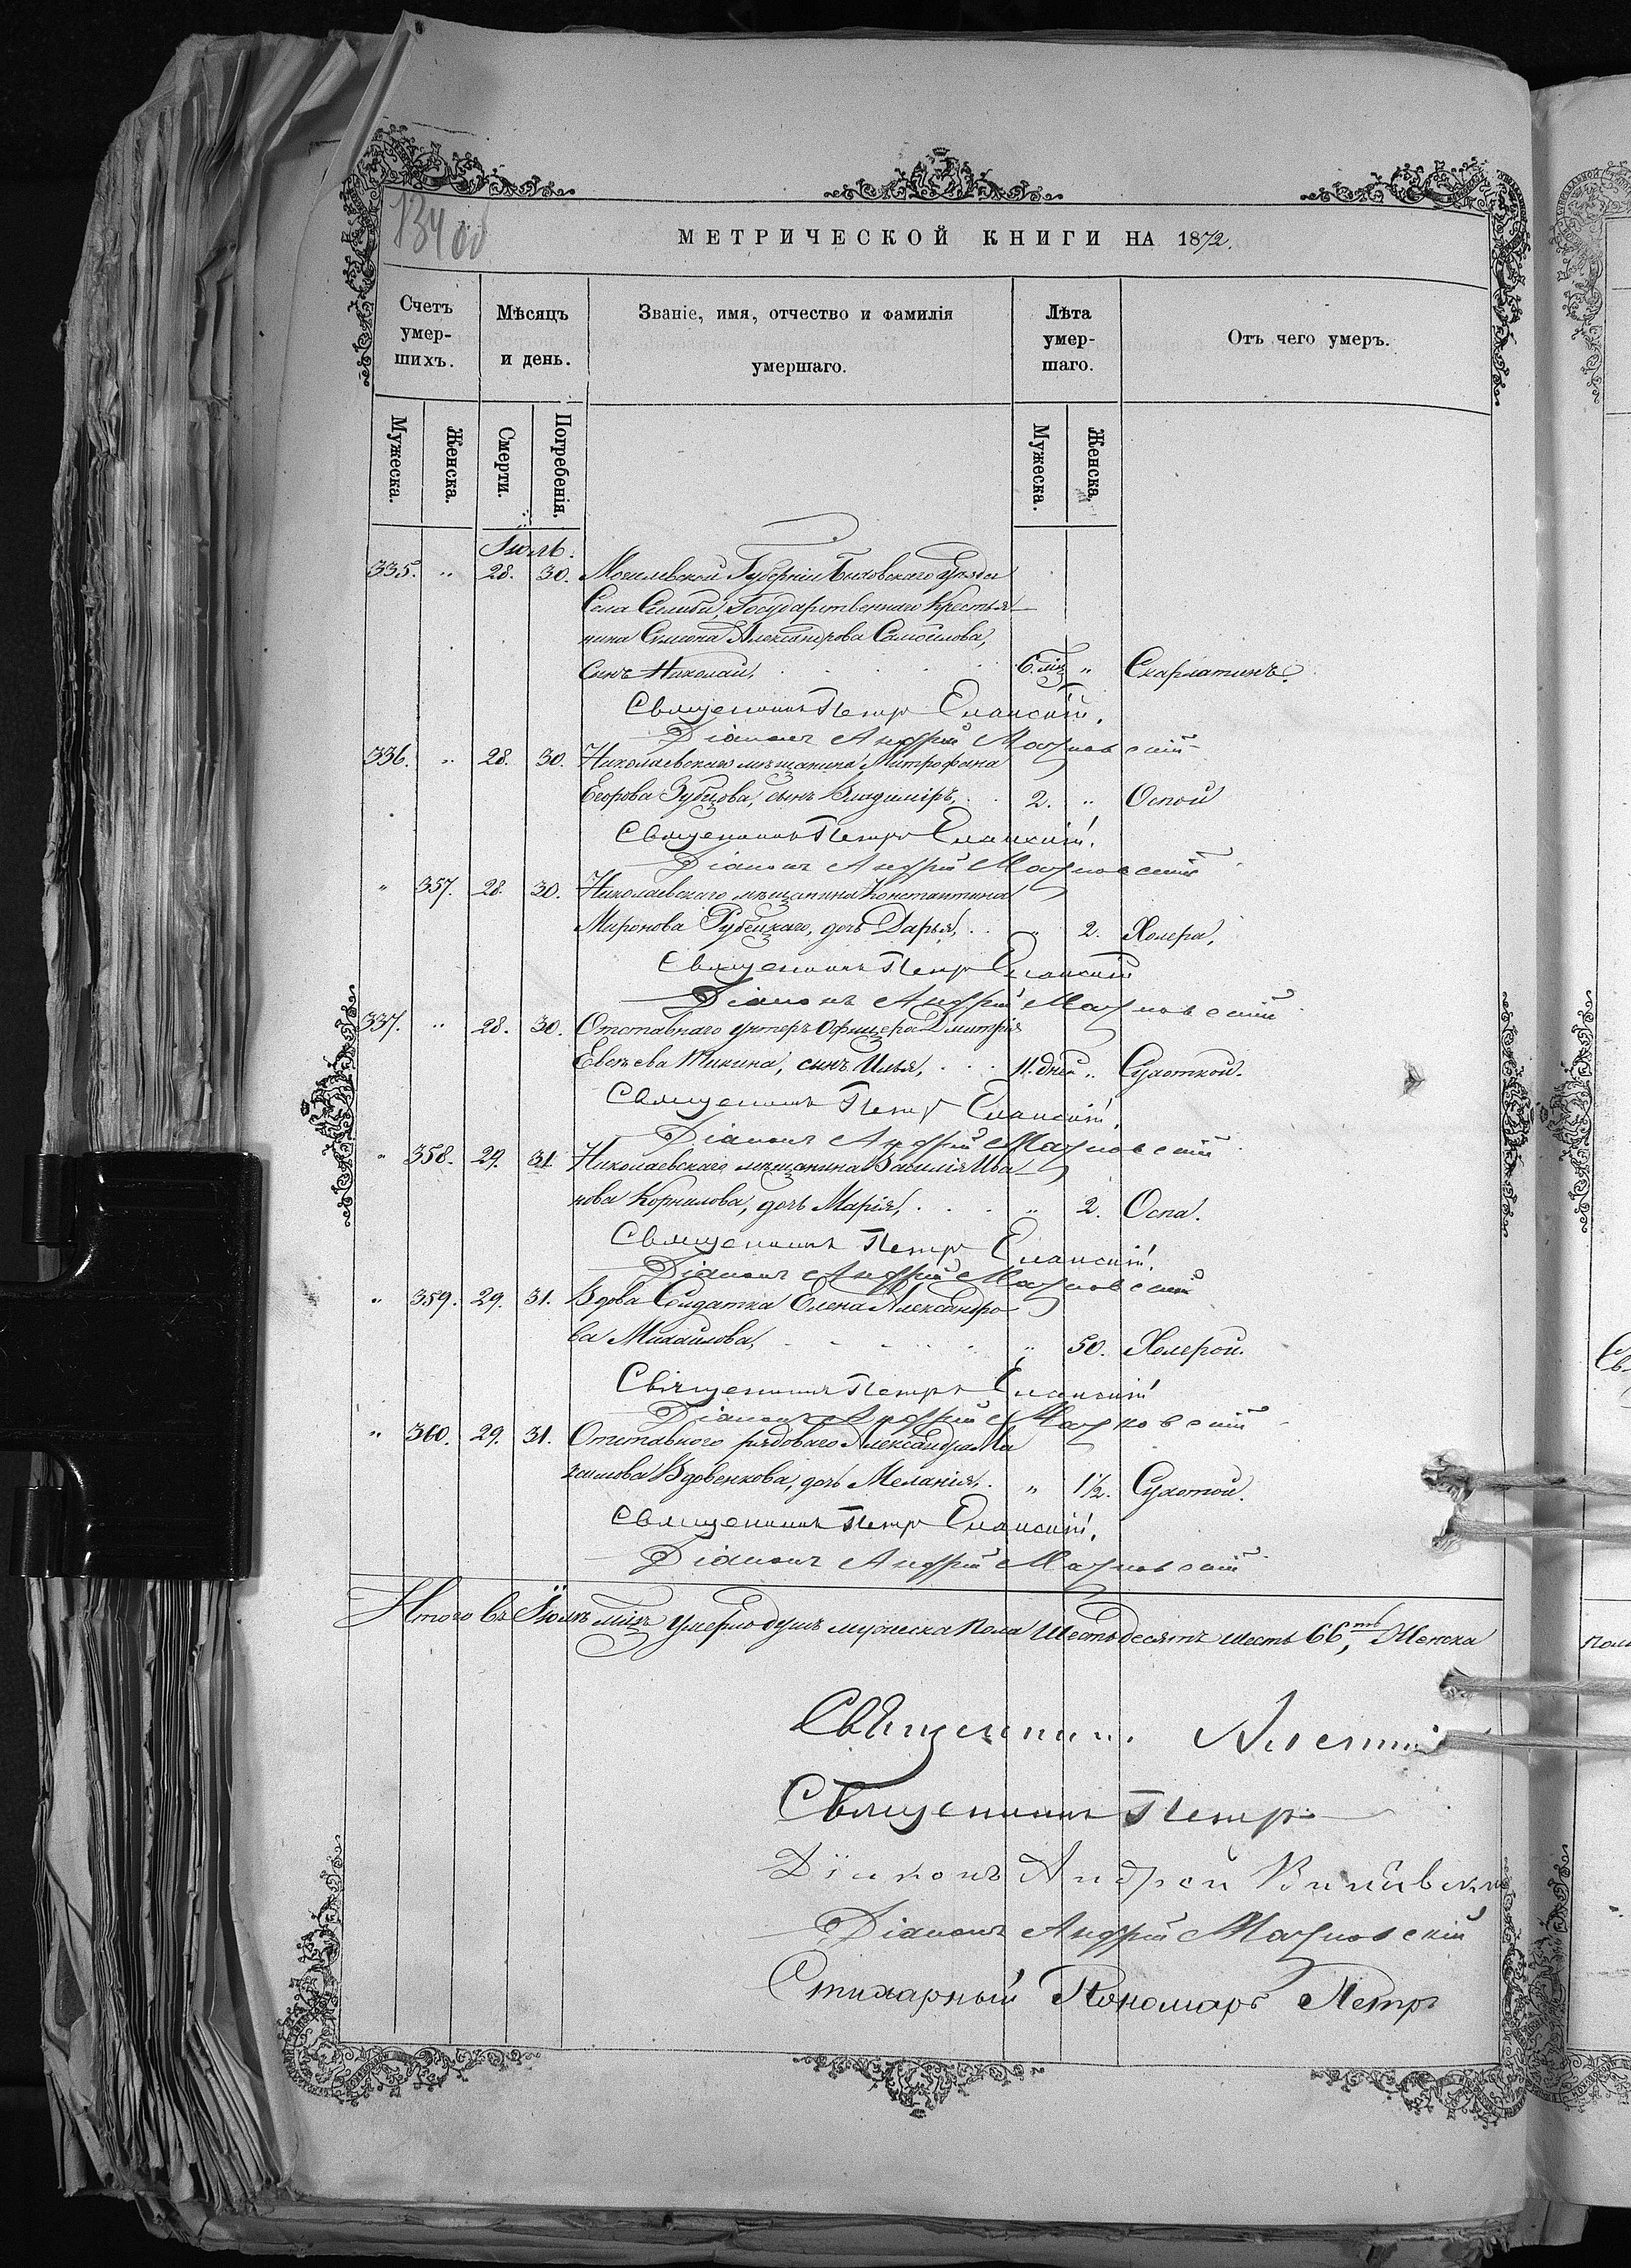 134 об
МЕТРИЧЕСКОЙ КНИГИ НА 1872.
Счетъ умер- шихъ.
Мѣсяцъ и день.
Званіе, имя, отчество и фамилія умершаго.
Лѣта умер- шаго.
Отъ чего умеръ.
Мужеска. Женска. Смерти. Погребенія. Мужеска. Женска.
Іюль.
335. " 28. 30. Могилевской Губерніи Быховскаго Уѣзда
Села Государственнаго Крестья-
нина Симеона Александрова Самойлова,
сынъ Николай, 6. мц " Скарлатинъ.
Священникъ Петръ Еланскій.
Діаконъ Андрей
336. " 28. 30. Николаевскаго мѣщанина Митрофана
Егорова Зубцова, сынъ Владиміръ, 2. " Оспой
Священникъ Петръ Еланскій.
Діаконъ Андрей
" 357. 28. 30. Николаевскаго мѣщанина Константина
Миронова Рубецкаго, дочь Дарья, " 2. Холера.
Священникъ Петръ Еланскій
Діаконъ Андрей
337. " 28. 30. Отставнаго унтеръ Офицера Дмитрія
Евсѣева Тикина, сынъ Илья, 11. дней " Сухоткой.
Священникъ Петръ Еланскій.
Діаконъ Андрей
" 358. 29. 31. Николаевскаго мѣщанина Василія Ива
нова Корнилова, дочь Марія, " 2. Оспа.
Священникъ Петръ Еланскій.
Діаконъ Андрей
" 359. 29. 31. Вдова Солдатка Елена Александро-
ва Михайлова, " 50. Холерой.
Священникъ Петръ Еланскій
Діаконъ Андрей
" 360. 29. 31. Отставного рядоваго Александра Ма
ксимова Вдовенкова, дочь Меланія, " 1½. Сухотой.
Священникъ Петръ Еланскій.
Діаконъ Андрей
Итого въ Іюлѣ мцѣ умерло душъ мужеска пола шестьдесятъ шесть 66, Женска
Священникъ
Священникъ Петръ
Діаконъ Андрей
Діаконъ Андрей
Стихарный Пономарь Петръ